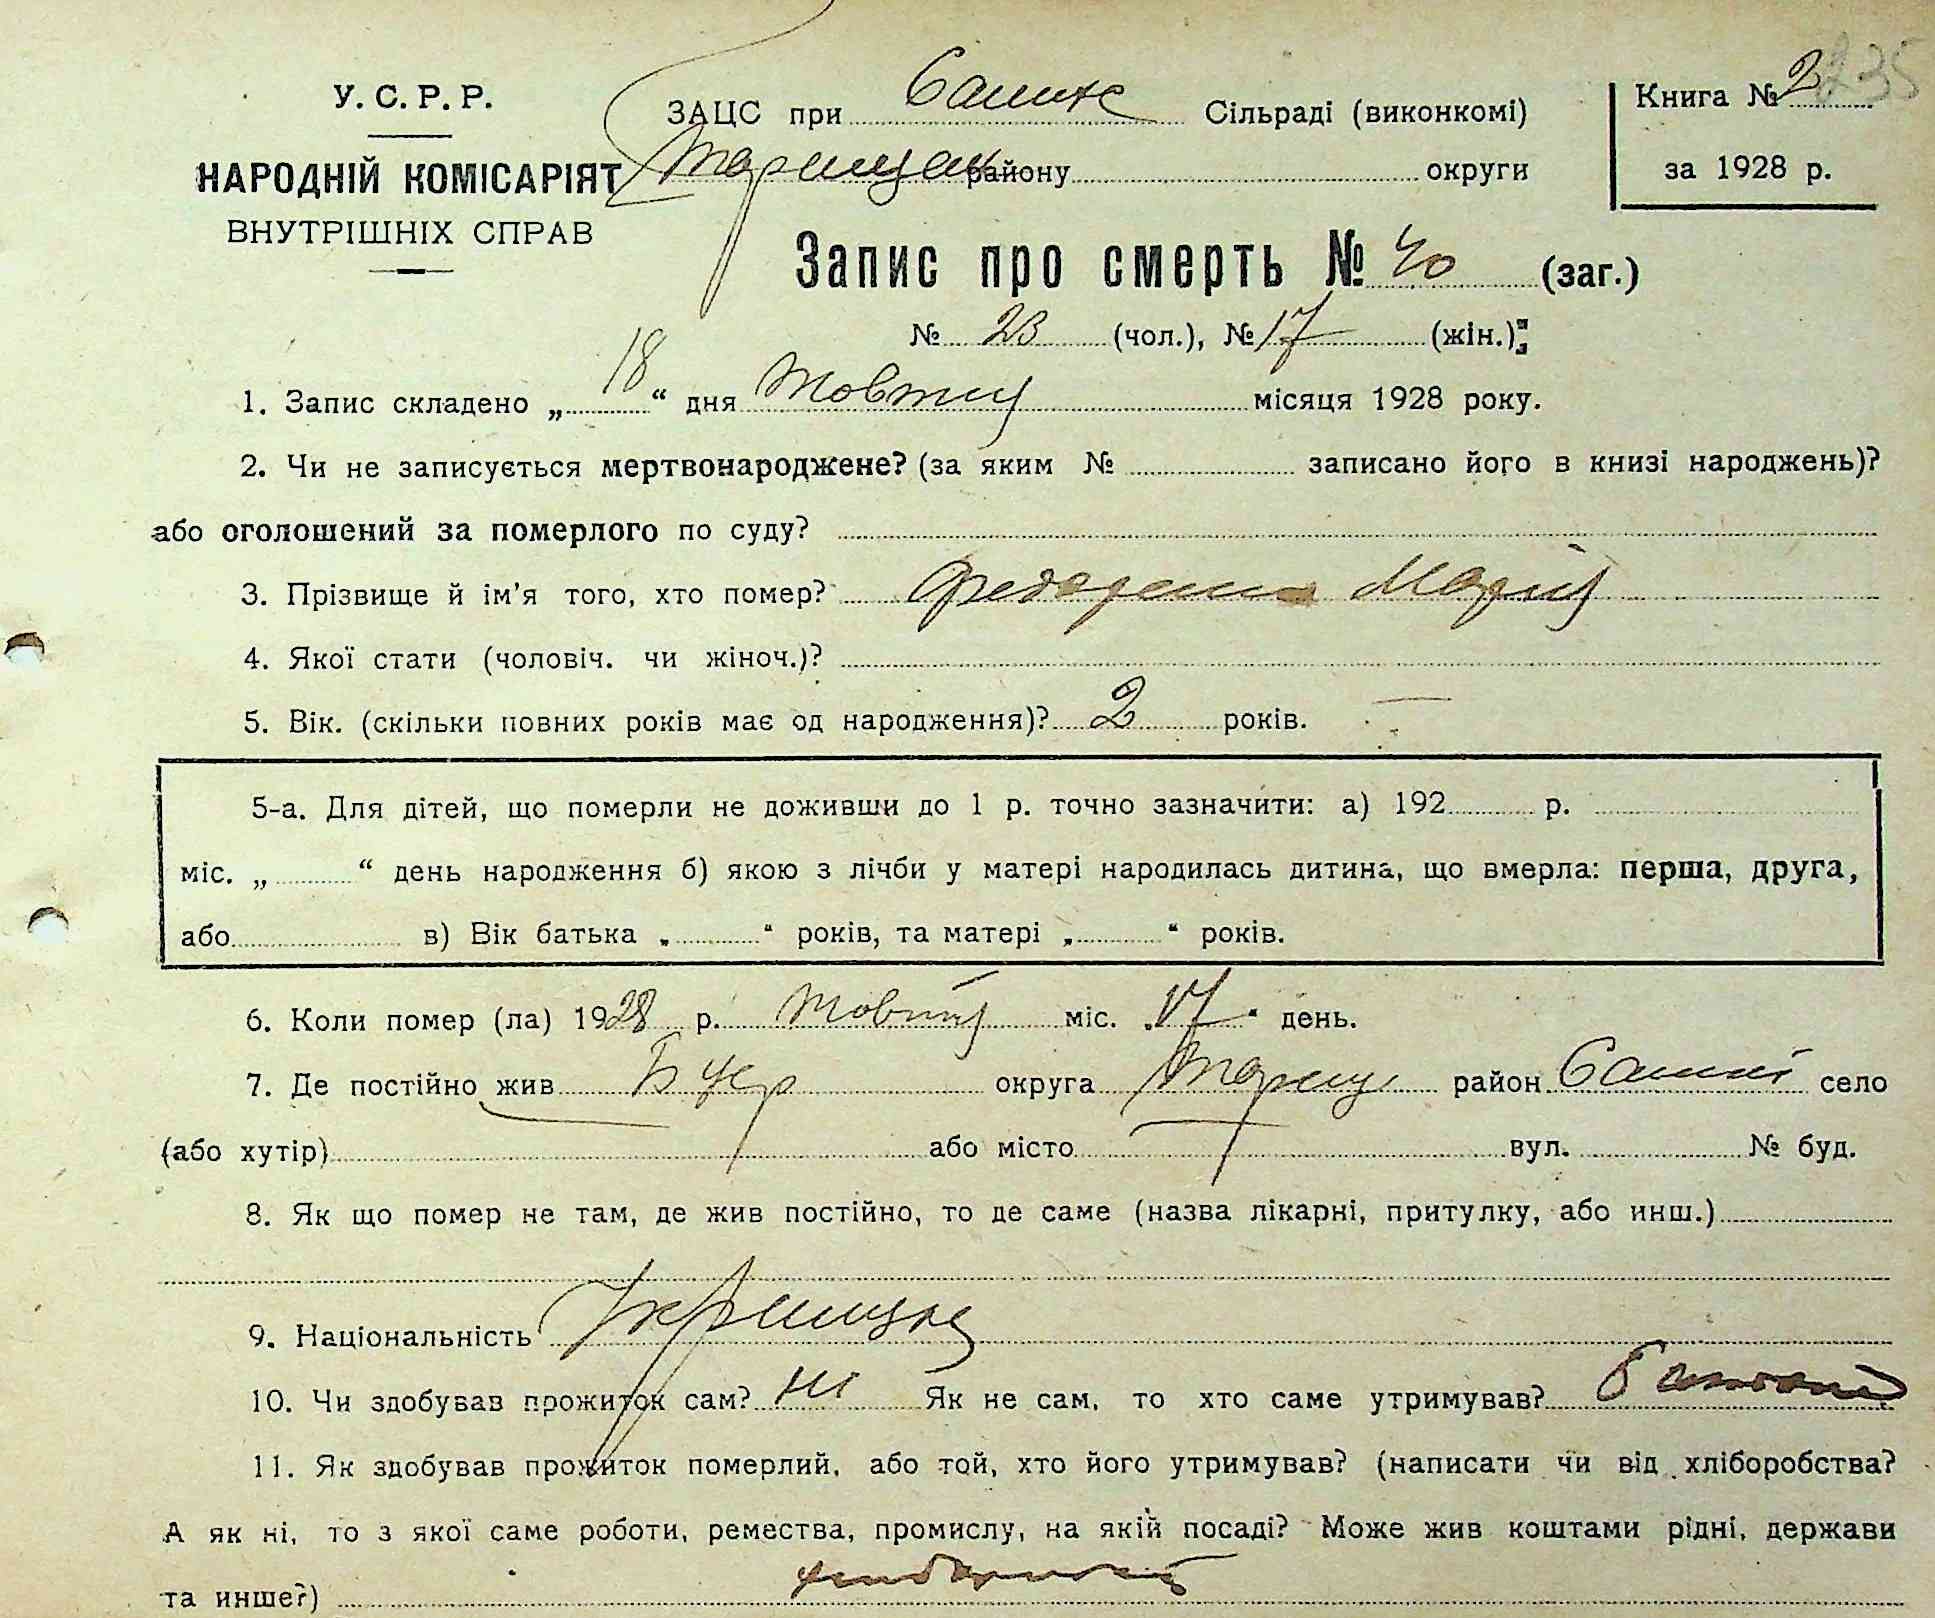 235
У.С.Р.Р.
НАРОДНІЙ КОМІСАРІЯТ
ВНУТРІШНІХ СПРАВ
ЗАЦС при Сільраді (виконкомі)
району округи
Книга № 2
за 1928 р.
Запис про смерть № 40 (заг.)
№ 23 (чол.), № 17 (жін.)
1. Запис складено „ 18 “ дня Жовтня місяця 1928 року.
2. Чи не записується мертвонароджене? (за яким № записано його в книзі народжень)?
або оголошений за померлого по суду?
3. Прізвище й ім'я того, хто помер? Марія
4. Якої стати (чоловіч. чи жіноч.)?
5. Вік. (скільки повних років має од народження)? 2 років.
5-а. Для дітей, що померли не доживши до 1 р. точно зазначити: а) 192 р.
міс. „ “ день народження б) якою з лічби у матері народилась дитина, що вмерла: перша, друга,
або в) Вік батька „ “ років, та матері „ “ років.
6. Коли помер (ла) 1928 р. Жовтня міс. „ 17 “ день.
7. Де постійно жив Б Цер округа Таращ район село
(або хутір) або місто вул. № буд.
8. Як що помер не там, де жив постійно, то де саме (назва лікарні, притулку, або инш.)
9. Національність
10. Чи здобував прожиток сам? ні Як не сам, то хто саме утримував?
11. Як здобував прожиток померлий, або той, хто його утримував? (написати чи від хліборобства?
А як ні, то з якої саме роботи, ремества, промислу, на якій посаді? Може жив коштами рідні, держави
та инше?)